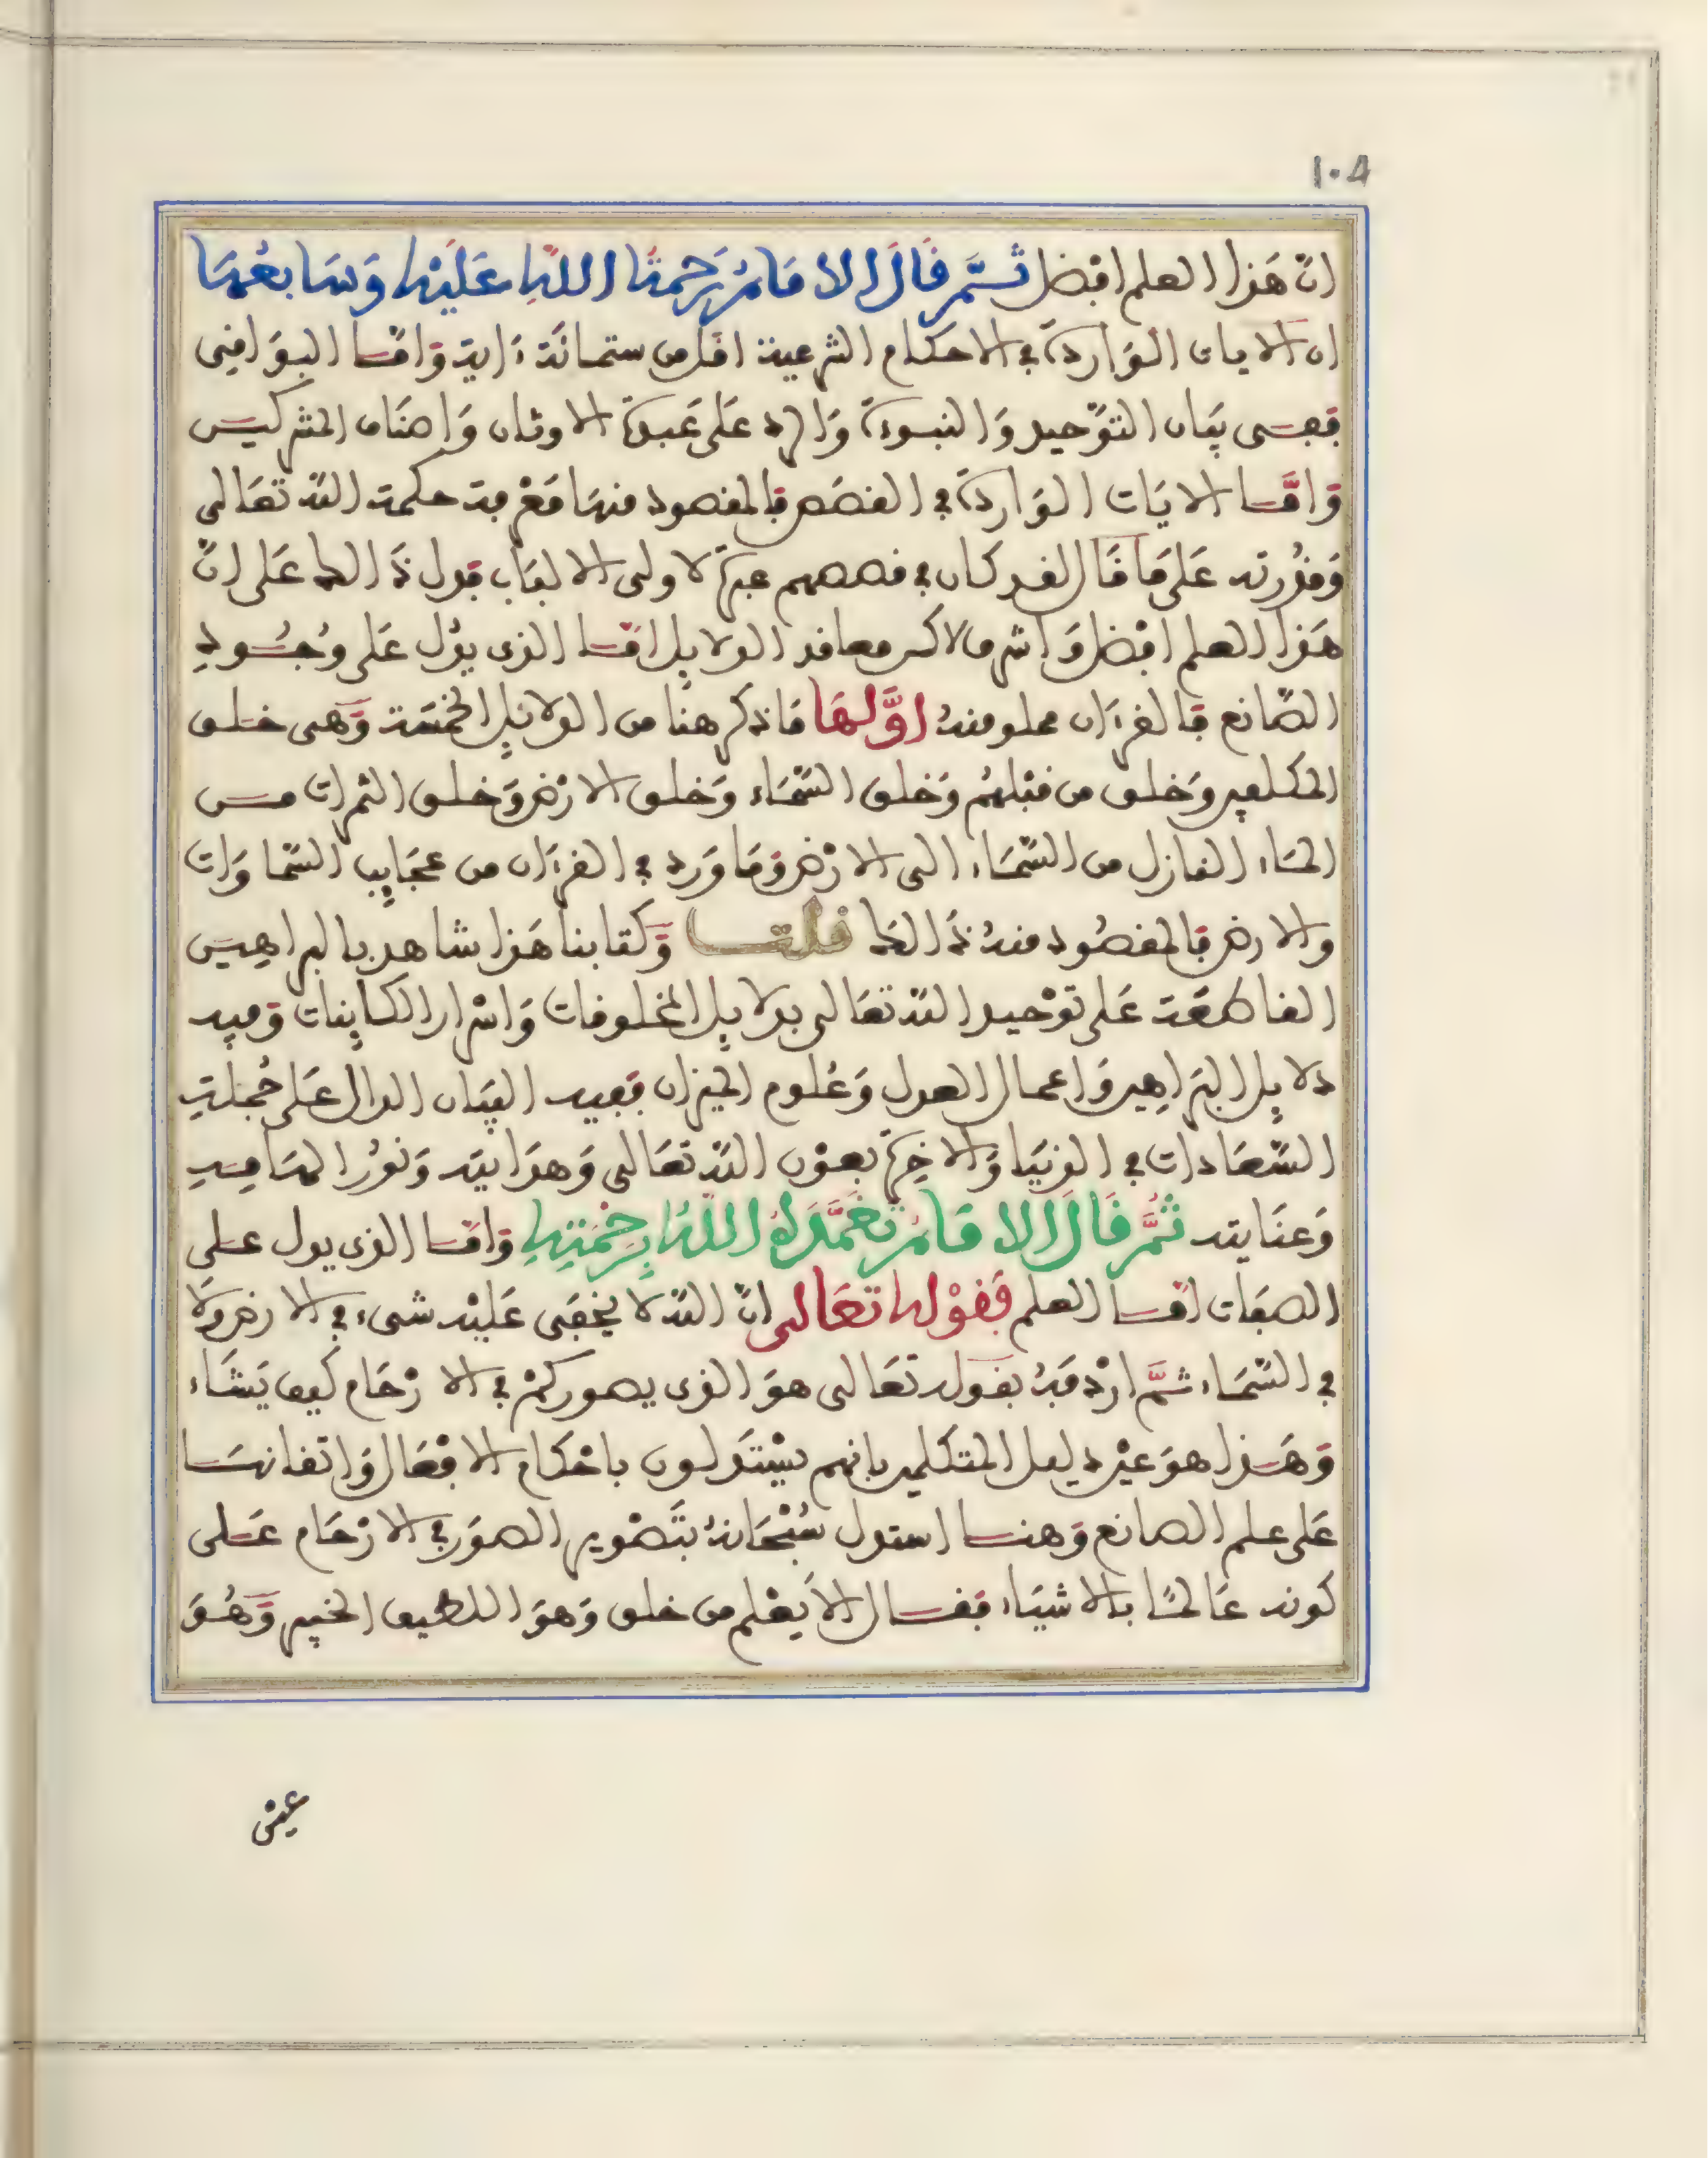 ١٠٤
انّ هَذا العلم افضل ثُمَّ قَالَ الامَامُ رَحمة اللهِ عَليْهِ وَسَابعُهَا
ان الايات الوَاردة في الاحكام الشرعية اقل من ستمائة ءاية وَامّا البوَاقي
ففى بيَان التوْحيد وَالنبوءة وَالرد عَلى عَبدة الاوثان وَاصنَاف المشركين
وَامَّا الايَات الوَاردة في القصَص فالمقصود منهَا مَعْرفة حكمة الله تعَالى
وَقدْرته عَلى مَا قَال لقد كان في قصصهم عبرة لاولى الالبَاب فدل ذَالك عَلى انّ
هَذا العلم افضل وَاشرف لاكن معاقد الدلايل امّا الذى يدُل عَلى وُجُودِ
الصّانع فَالقرءان مملو منهُ اوَّلهَا مَا ذكر هنا من الدلائل الخمسَة وَهى خلق
المكلفين وَخلق من قبْلهُم وَخلق السّمَاء وَخلق الارْض وَخلق الثمرات من
المَاء النازل من السّمَاء الى الارْض وَمَا وَرد في القرءان من عجَايب السّمَاوَات
والارض فالمقصُود منهُ ذَالك قلت وَكتابنا هَذا شاهد بالبراهين
القاطعَة عَلى توْحيد الله تعَالى بدلايل المخلوقات وَاسْرار الكاينات وَفيه
دلايل البرَاهِين وَاعمال العدل وَعُلوم الميزان ففيه البيَان الدال عَلى جُملةِ
السّعَادات في الدّنيَا وَالاخِرة بعوْن الله تعَالى وَهدَايته وَنوُر المَامِنهِ
وَعنَايته ثُمَّ قَالَ الامَامُ تغَمَّدَهُ اللهُ بِرَحْمَتِهِ وَامّا الذى يدل على
الصفَات امّا العلم فَقوْله تعَالى انّ الله لا يخفَى عَليْه شىء في الارض وَلا
في السّمَاء ثمَّ ارْدفَهُ بقوله تعَالى هوَ الذى يصوركمْ في الارْحَام كيف يَشَاء
وَهَذا هوَ عيْن دليل المتكلمين بانهم يسْتدَلون باحْكام الافْعَال وَاتقانهَا
عَلى علم الصانع وَهنا استدل سُبْحَانهُ بتَصْوير الصوَر في الارْحَام عَلى
كونه عَالمًا بالاشيَاء فقال الاَ يَعْلم من خلق وَهوَ اللطيف الخبير وَهُوَ
عيْن